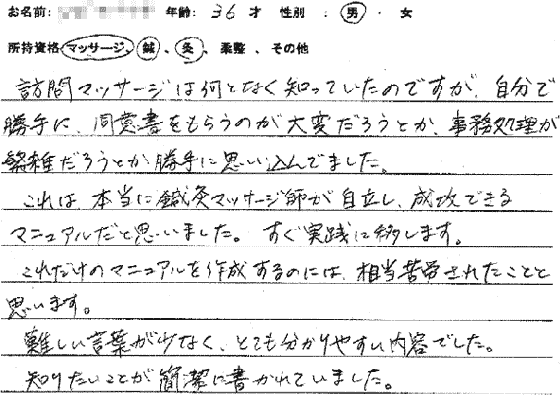 お名前: 年齢: 36 才 性別: 男 ・ 女
所持資格 マッサージ、鍼、灸、柔整、その他
訪問マッサージは何となく知っていたのですが、自分で
勝手に、同意書をもらうのが大変だろうとか、事務処理が
繁雑だろうとか勝手に思い込んでました。
これは、本当に鍼灸マッサージ師が自立し、成功できる
マニュアルだと思いました。すぐ実践に移します。
これだけのマニュアルを作成するのには、相当苦労されたことと
思います。
難しい言葉が少なく、とても分かりやすい内容でした。
知りたいことが簡潔に書かれていました。